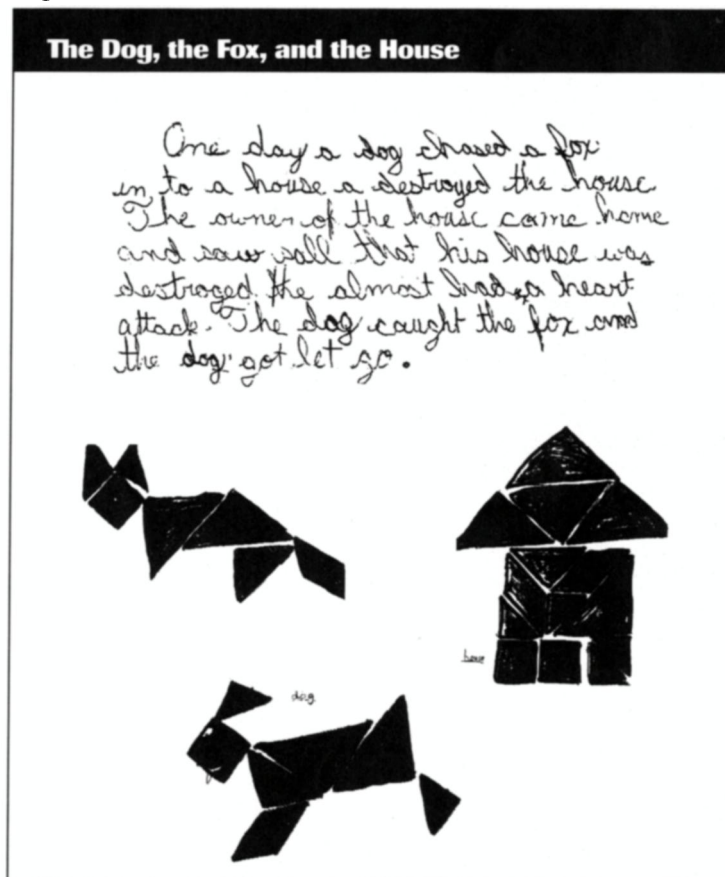 The Dog, the Fox, and the House
One day a dog chased a fox
in to a house a destroyed the house.
The owner of the house came home
and saw sall that his house was
destroyed. He almost had a heart
attack. The dog caught the fox and
the dog got let go.
dog